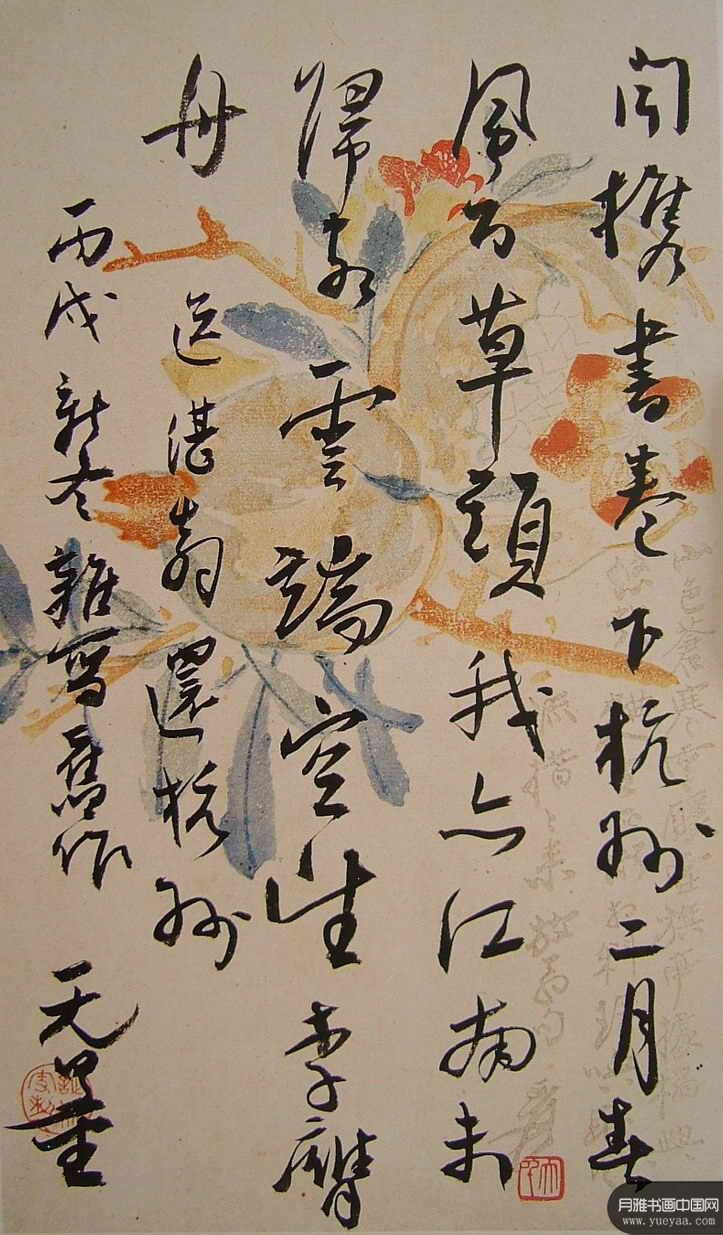 闻携书卷下杭州二月春
风百草头我亦江南未
归客云端空望李膺
舟
送湛翁还杭州
丙戌新冬杂写旧作
无量
月雅书画中国网
www.yueyaa.com